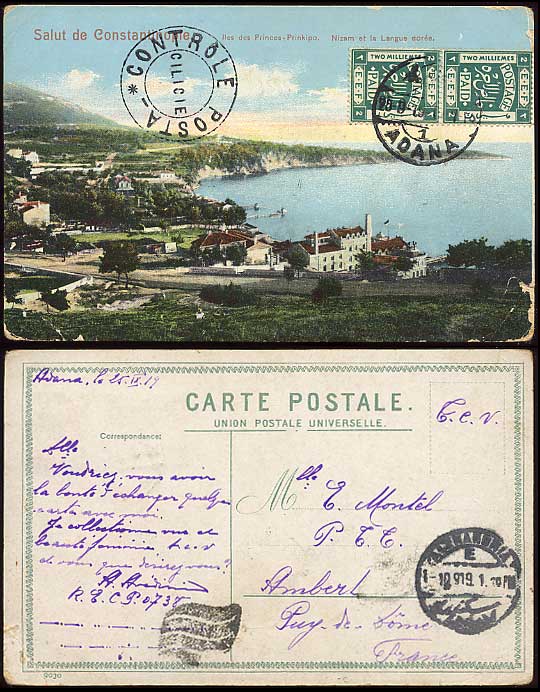 Salut de Constantinople. Iles des Princes-Prinkipo. Nizam et la Langue dorée.
CONTRÔLE
CILICIE
POSTA
TWO MILLIEMES
POSTAGE
PAID
E.E.F.
2
TWO MILLIEMES
POSTAGE
PAID
E.E.F.
2
ADANA
1
Adana, le 25.IX.19
CARTE POSTALE.
UNION POSTALE UNIVERSELLE.
T.C.V.
Correspondance:
Mlle
Voudriez vous avoir
la bonté d'échanger quelques
cartes avec moi.
Je collectionne vue de
beauté féminine t.c.v
de vous que désirez vous?
R.E.C.P. 0737
Mlle
E. Montel
P. T. T.
Ambert
Puy-de-Dôme
France
ALEXANDRIA
E
9030